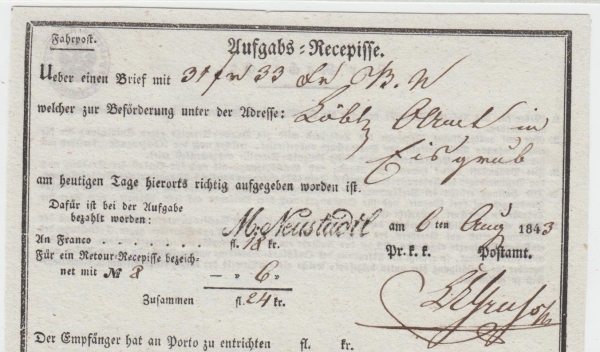 Fahrpost.
Aufgabs-Recepisse.
Ueber einen Brief mit 31 fr 33 Xr B. N
welcher zur Beförderung unter der Adresse: Löbl Amt in
Eisgrub
am heutigen Tage hierorts richtig aufgegeben worden ist.
Dafür ist bei der Aufgabe
bezahlt worden:
M. Neustadtl am 6 ten Aug 1843
An Franco . . . . . . . fl. 18 kr.
Pr. k. k. Postamt.
Für ein Retour-Recepisse bezeich-
net mit № 8 — „ 6 „
Zusammen fl. 24 kr.
Der Empfänger hat an Porto zu entrichten fl. kr.